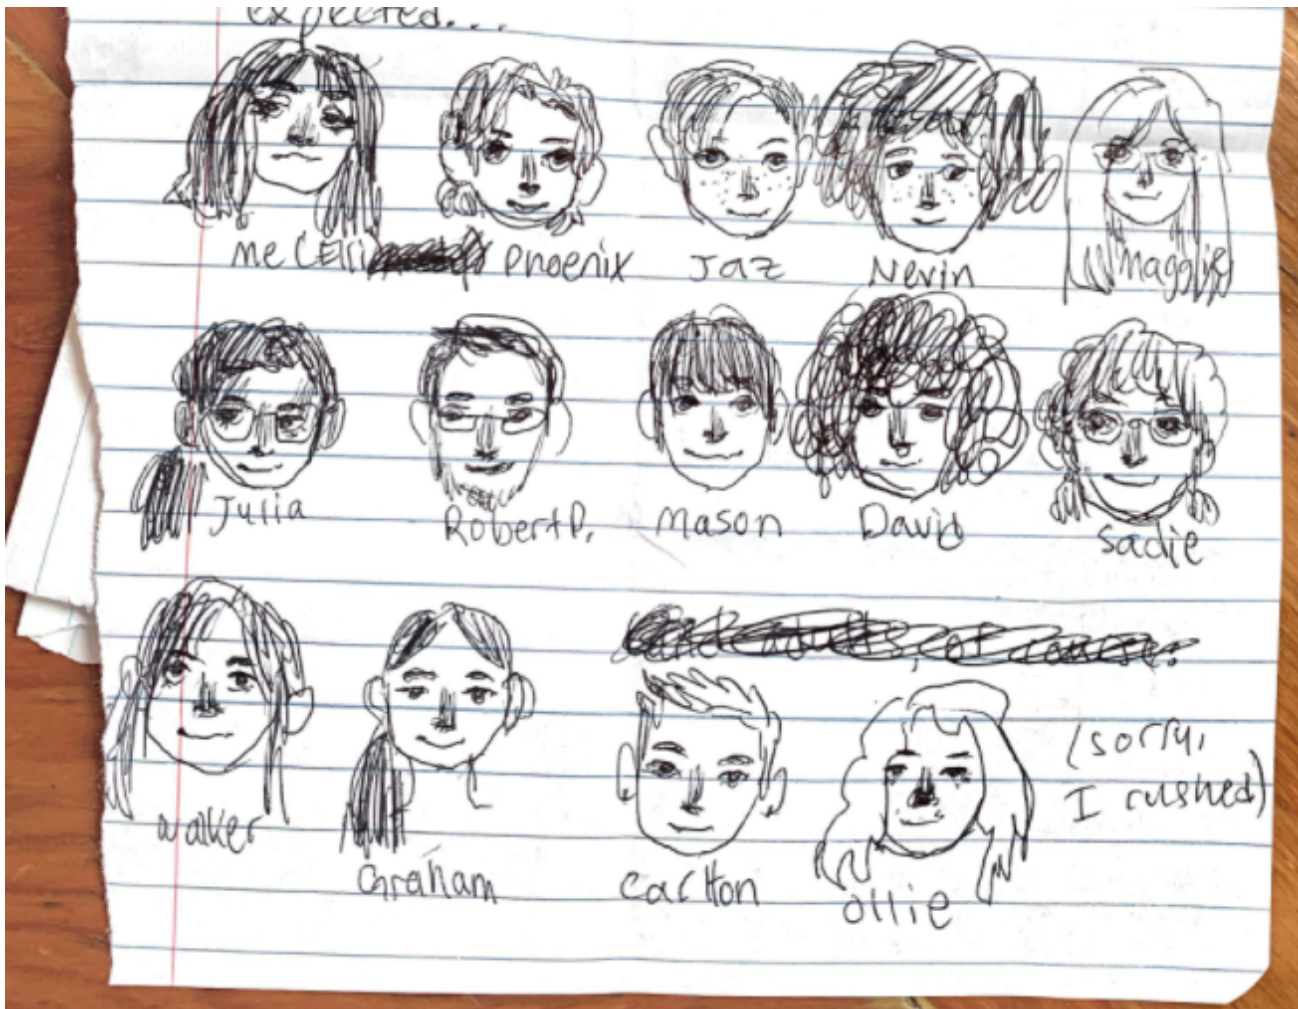 expected...
me (Elli Phoenix Jaz Nevin Maggie
Julia Robert P. Mason David Sadie
Walker Graham Carlton Ollie
(sorry,
I rushed)